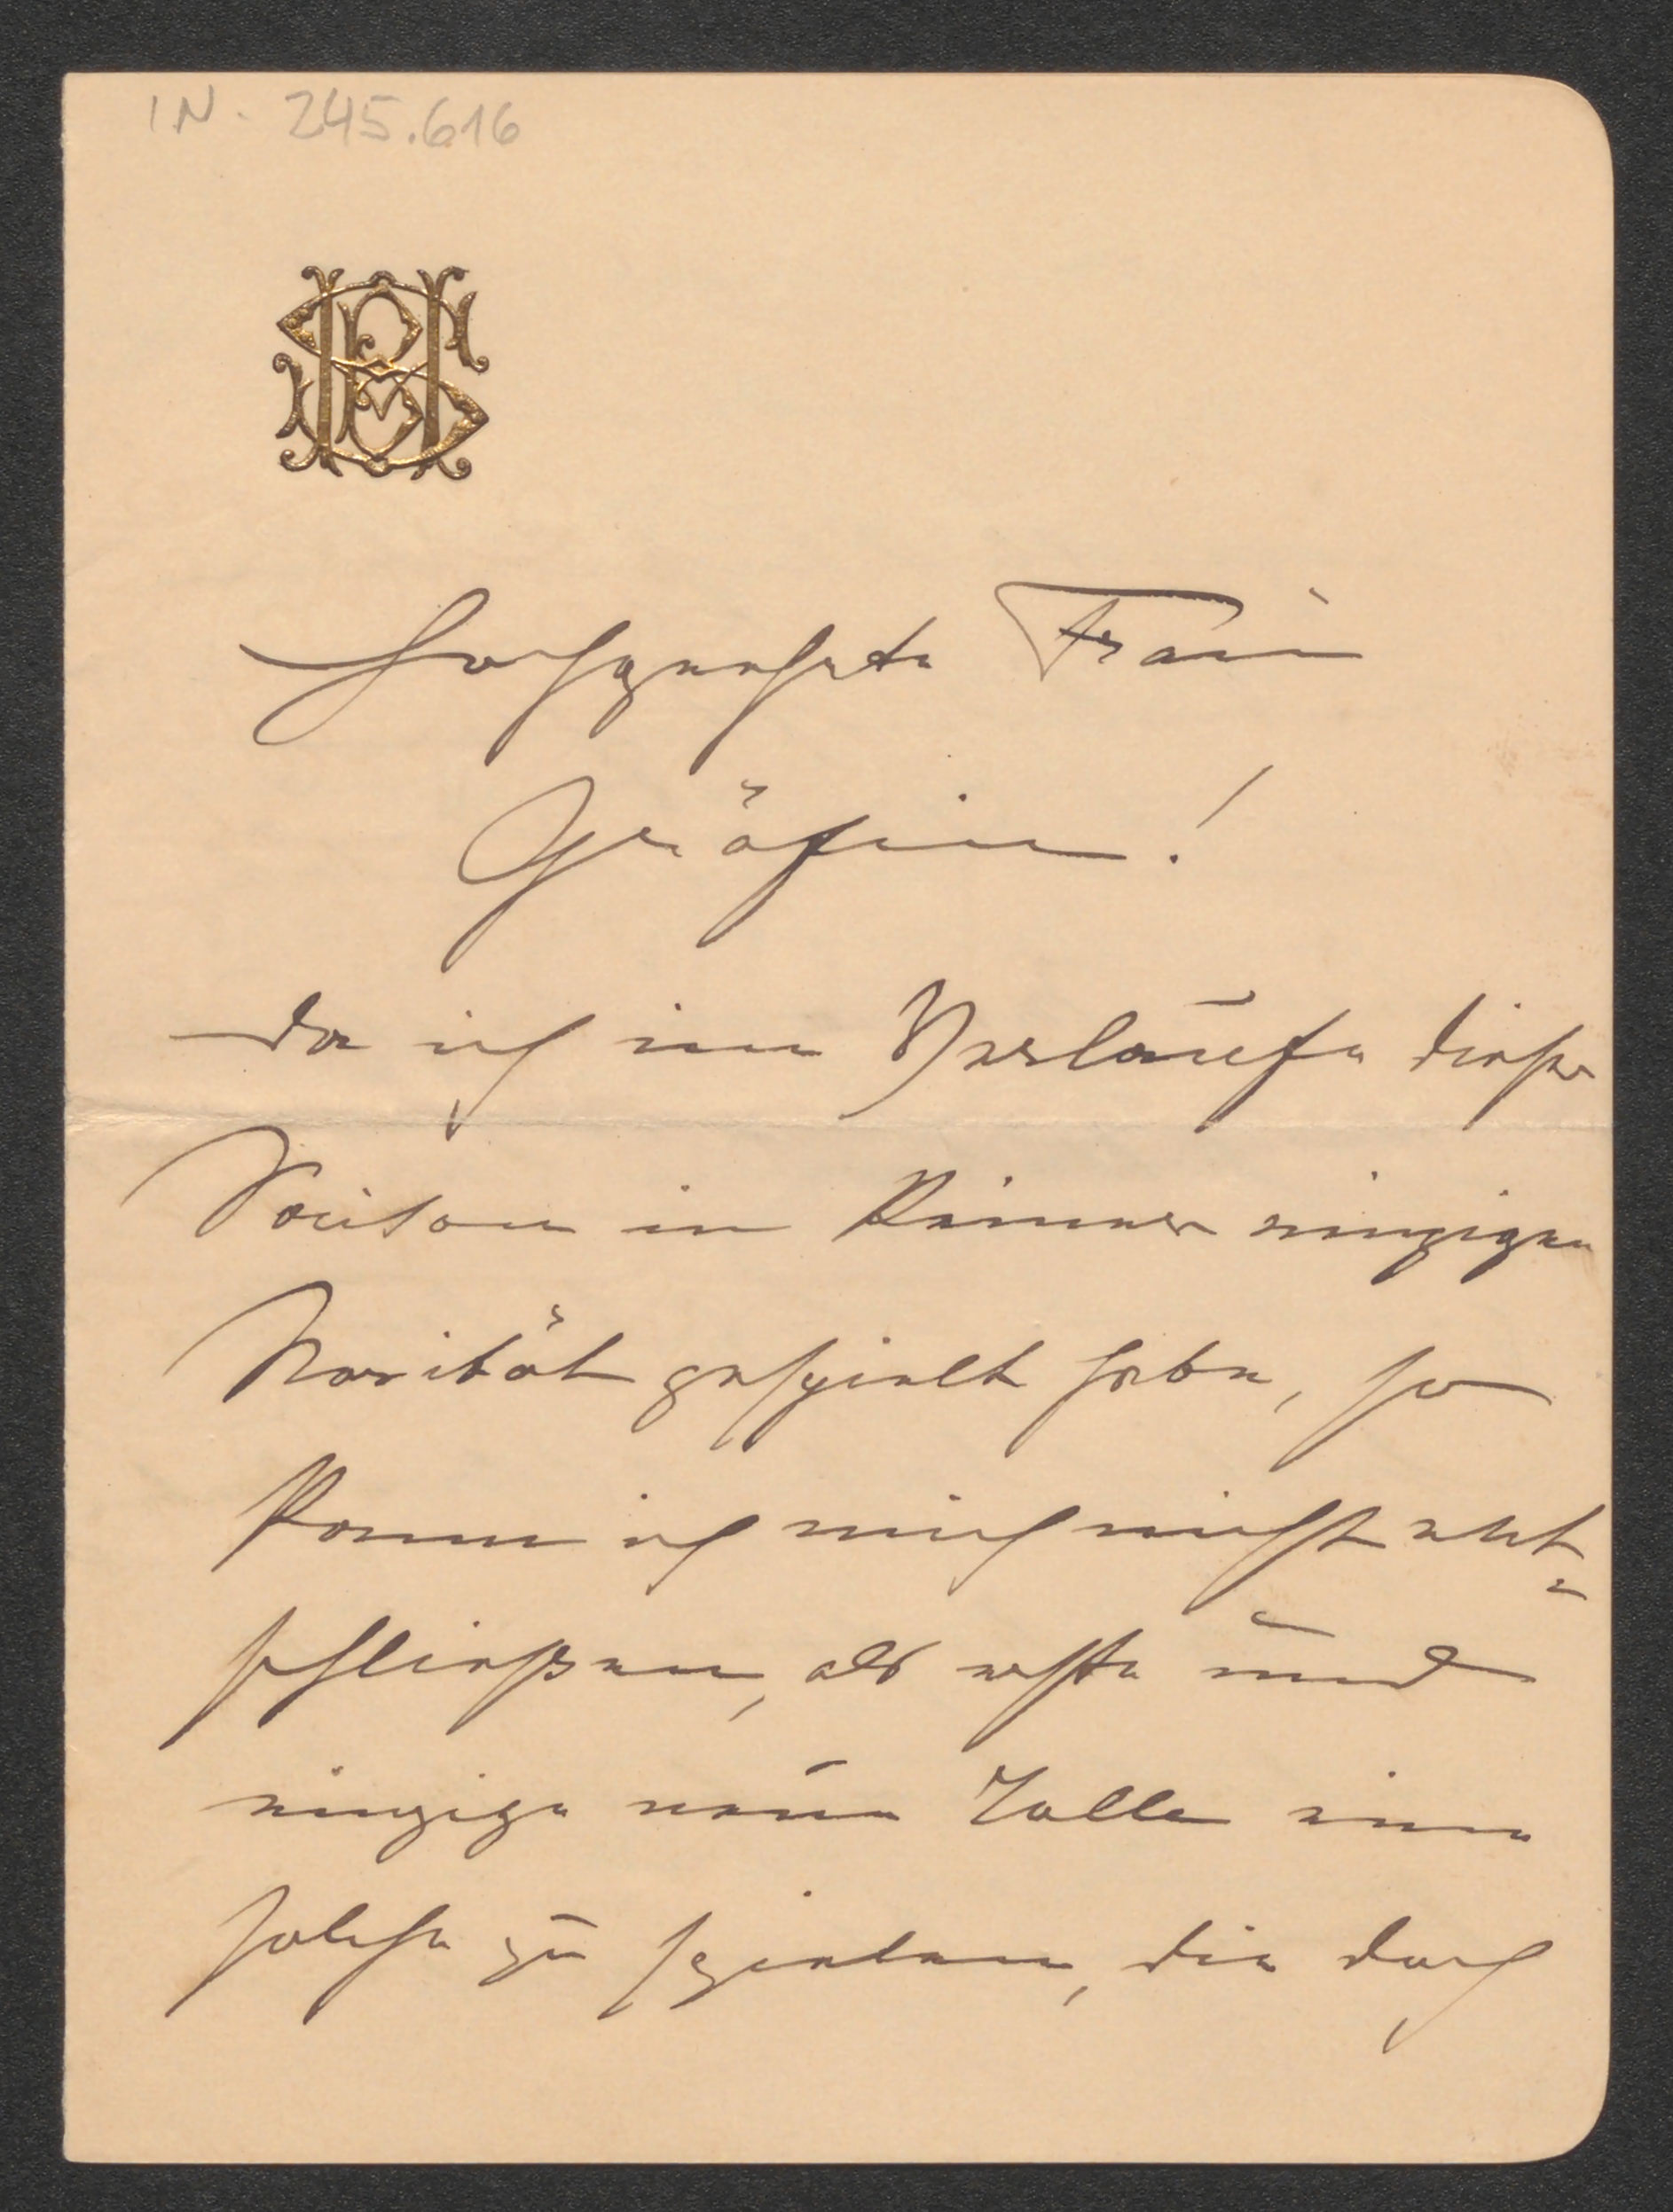 IN. 245.616
Hochgeehrte Frau
Gräfin!
Da ich im Verlaufe dieser
Saison in keiner einzigen
Novität gespielt habe, so
kann ich mich nicht ent-
schließen, als erste und
einzige neue Rolle eine
solche zu spielen, die doch